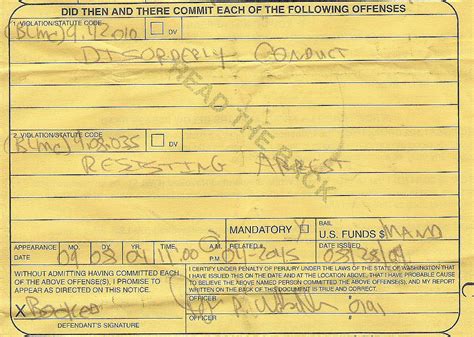 DID THEN AND THERE COMMIT EACH OF THE FOLLOWING OFFENSES
1. VIOLATION/STATUTE CODE DV
(BLMC) 9.42.010
DISORDERLY CONDUCT
READ THE BACK
2. VIOLATION/STATUTE CODE DV
(BLMC) 9.08.035
RESISTING ARREST
MANDATORY BAIL
U.S. FUNDS $ MAND
APPEARANCE MO. DAY YR. TIME RELATED # DATE ISSUED
DATE 09 08 04 11:00 04-2045 08-28-04
WITHOUT ADMITTING HAVING COMMITTED EACH
OF THE ABOVE OFFENSE(S), I PROMISE TO
APPEAR AS DIRECTED ON THIS NOTICE.
X Booked
DEFENDANT'S SIGNATURE
I CERTIFY UNDER PENALTY OF PERJURY UNDER THE LAWS OF THE STATE OF WASHINGTON THAT
I HAVE ISSUED THIS ON THE DATE AND AT THE LOCATION ABOVE, THAT I HAVE PROBABLE CAUSE
TO BELIEVE THE ABOVE NAMED PERSON COMMITTED THE ABOVE OFFENSE(S), AND MY REPORT
WRITTEN ON THE BACK OF THIS DOCUMENT IS TRUE AND CORRECT.
OFFICER
OFFICER